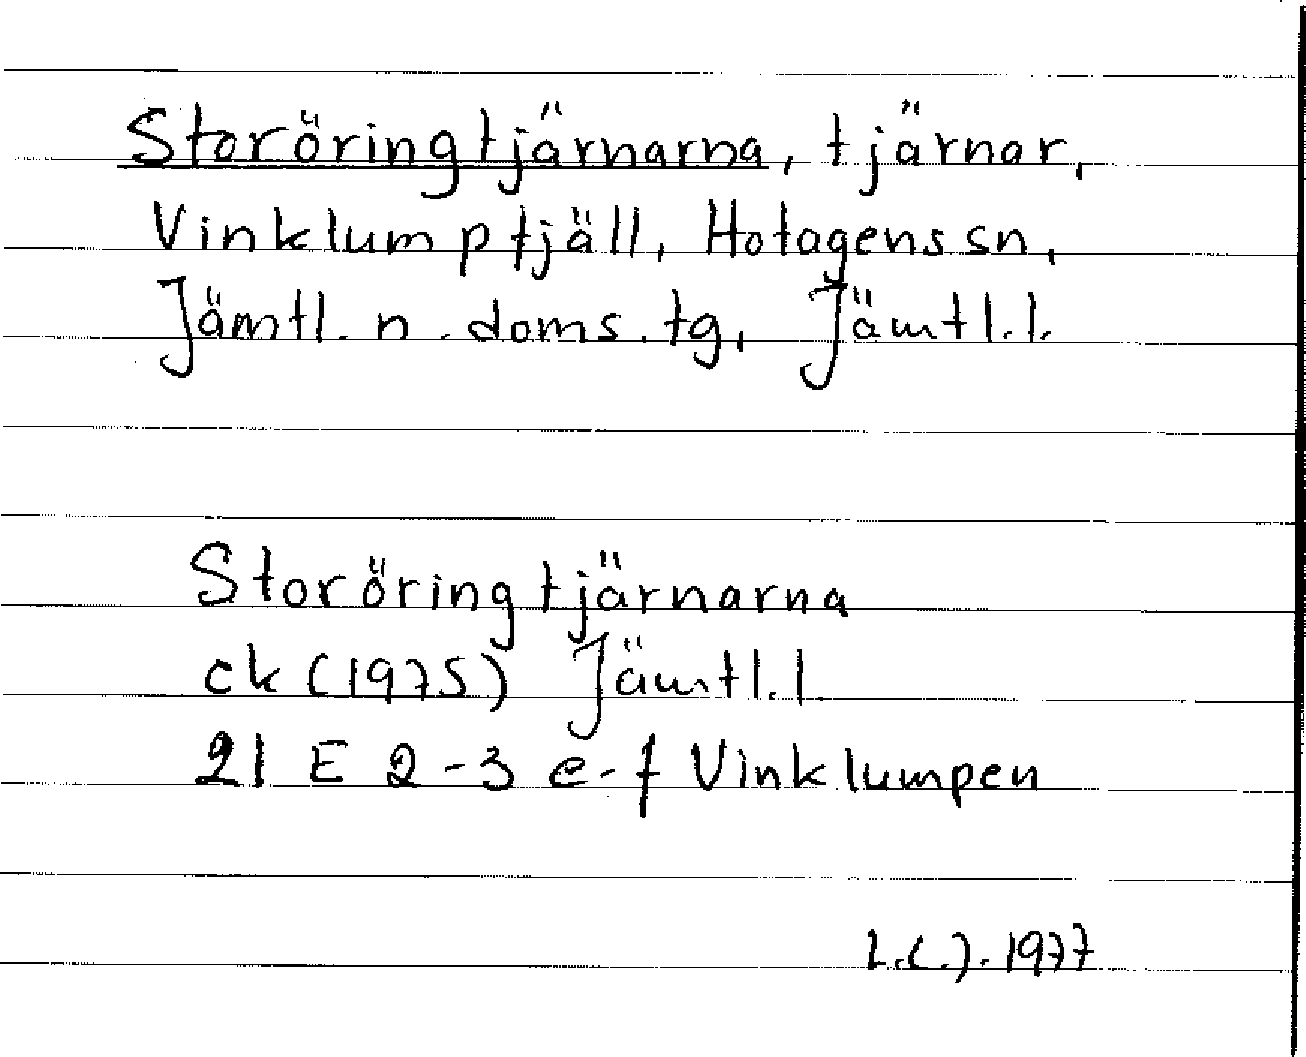 Storöringtjärnarna, tjärnar,
Vinklumpfjäll, Hotagens sn,
Jämtl. n. doms. tg, Jämtl. l.
Storöringtjärnarna
ck (1975) Jämtl. l.
21 E 2-3 e-f Vinklumpen
1977